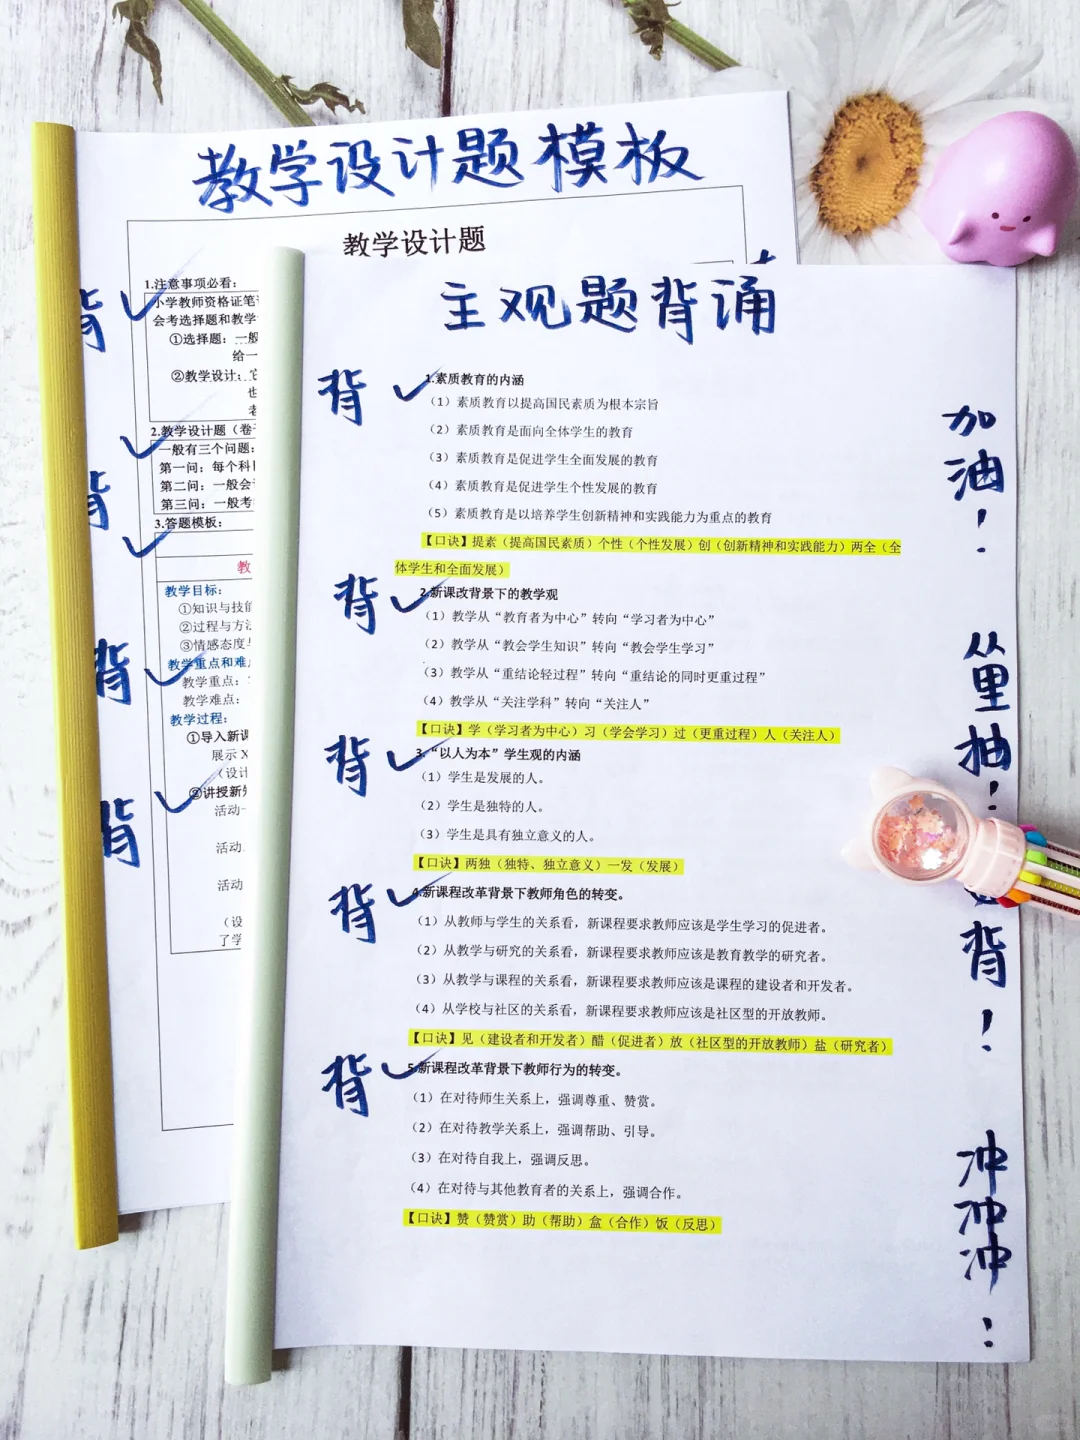 教学设计题模板
教学设计题
1.注意事项必看:
小学教师资格证笔
会考选择题和教学
①选择题:一般
给一
②教学设计:
也
2.教学设计题(卷
一般有三个问题:
第一问:每个科
第二问:一般会
第三问:一般考
3.答题模板:
教
教学目标:
①知识与技能
②过程与方法
③情感态度
教学重点和难
教学重点:
教学难点:
教学过程:
①导入新课
展示X
(设计
②讲授新知
活动一
活动
活动
(设
了学
背
背
背
背
主观题背诵
背
1.素质教育的内涵
(1)素质教育以提高国民素质为根本宗旨
(2)素质教育是面向全体学生的教育
(3)素质教育是促进学生全面发展的教育
(4)素质教育是促进学生个性发展的教育
(5)素质教育是以培养学生创新精神和实践能力为重点的教育
【口诀】提素(提高国民素质)个性(个性发展)创(创新精神和实践能力)两全(全
体学生和全面发展)
背
2.新课改背景下的教学观
(1)教学从“教育者为中心”转向“学习者为中心”
(2)教学从“教会学生知识”转向“教会学生学习”
(3)教学从“重结论轻过程”转向“重结论的同时更重过程”
(4)教学从“关注学科”转向“关注人”
【口诀】学(学习者为中心)习(学会学习)过(更重过程)人(关注人)
背
3.“以人为本”学生观的内涵
(1)学生是发展的人。
(2)学生是独特的人。
(3)学生是具有独立意义的人。
【口诀】两独(独特、独立意义)一发(发展)
背
4.新课程改革背景下教师角色的转变。
(1)从教师与学生的关系看,新课程要求教师应该是学生学习的促进者。
(2)从教学与研究的关系看,新课程要求教师应该是教育教学的研究者。
(3)从教学与课程的关系看,新课程要求教师应该是课程的建设者和开发者。
(4)从学校与社区的关系看,新课程要求教师应该是社区型的开放教师。
【口诀】见(建设者和开发者)醋(促进者)放(社区型的开放教师)盐(研究者)
背
5.新课程改革背景下教师行为的转变。
(1)在对待师生关系上,强调尊重、赞赏。
(2)在对待教学关系上,强调帮助、引导。
(3)在对待自我上,强调反思。
(4)在对待与其他教育者的关系上,强调合作。
【口诀】赞(赞赏)助(帮助)盒(合作)饭(反思)
加油!
从里抽!
背!
冲冲冲!